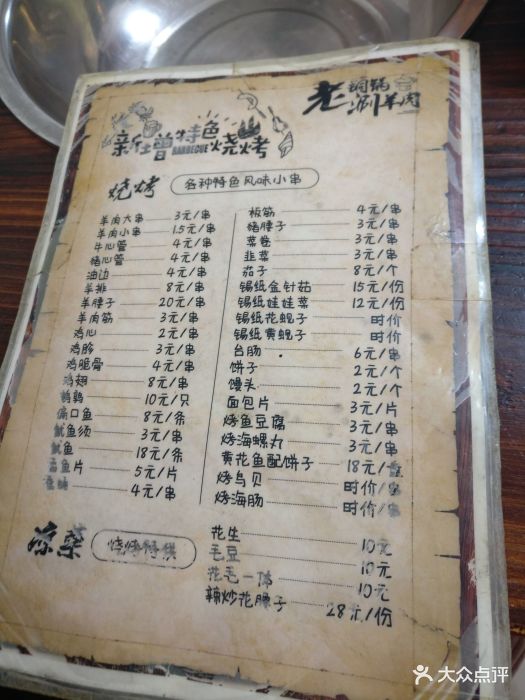 老铜锅
涮羊肉
新土曾特色烧烤
BARBECUE
烧烤 各种特色风味小串
羊肉大串 3元/串
羊肉小串 1.5元/串
牛心管 4元/串
猪心管 4元/串
油边 4元/串
羊排 8元/串
羊腰子 20元/串
羊肉筋 3元/串
鸡心 2元/串
鸡胗 3元/串
鸡脆骨 4元/串
鸡翅 8元/串
鹌鹑 10元/只
偏口鱼 8元/条
鱿鱼须 3元/串
鱿鱼 18元/条
鱼片 5元/片
4元/串
板筋 4元/串
猪腰子 3元/串
菜卷 3元/串
韭菜 3元/串
茄子 8元/个
锡纸金针菇 15元/份
锡纸娃娃菜 12元/份
锡纸花蚬子 时价
锡纸黄蚬子 时价
台肠 6元/串
饼子 2元/个
馒头 2元/个
面包片 3元/片
烤鱼豆腐 3元/串
烤海螺丸 3元/串
黄花鱼配饼子 18元/盘
烤鸟贝 时价/串
烤海肠 时价/串
凉菜 烧烤特供
花生 10元
毛豆 10元
花毛一体 10元
辣炒花腰子 28元/份
大众点评